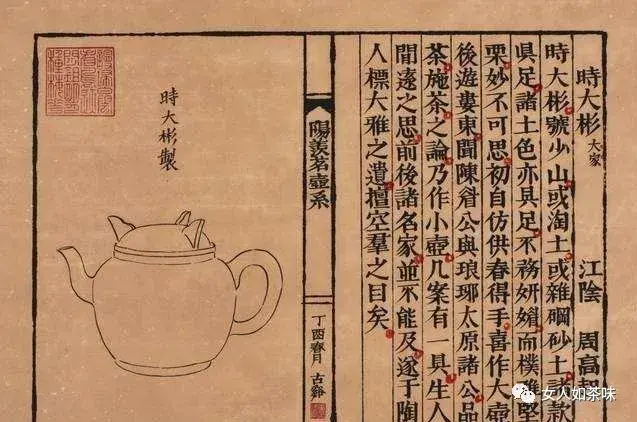 時大彬 大家 江陰 周高
時大彬號少山或淘土或雜碙砂土款
具足諸土色亦具足不務妍媚而樸雅堅
栗妙不可思初自仿供春得手喜作大壺
後遊婁東聞陳睂公與琅琊太原諸公品
茶施茶之論乃作小壺几案有一具生人
閒遠之思前後諸名家並不能及遂于陶
人標大雅之遺擅空羣之目矣
陽羨茗壺系
丁酉春月 古谿
時大彬製
女人如茶味